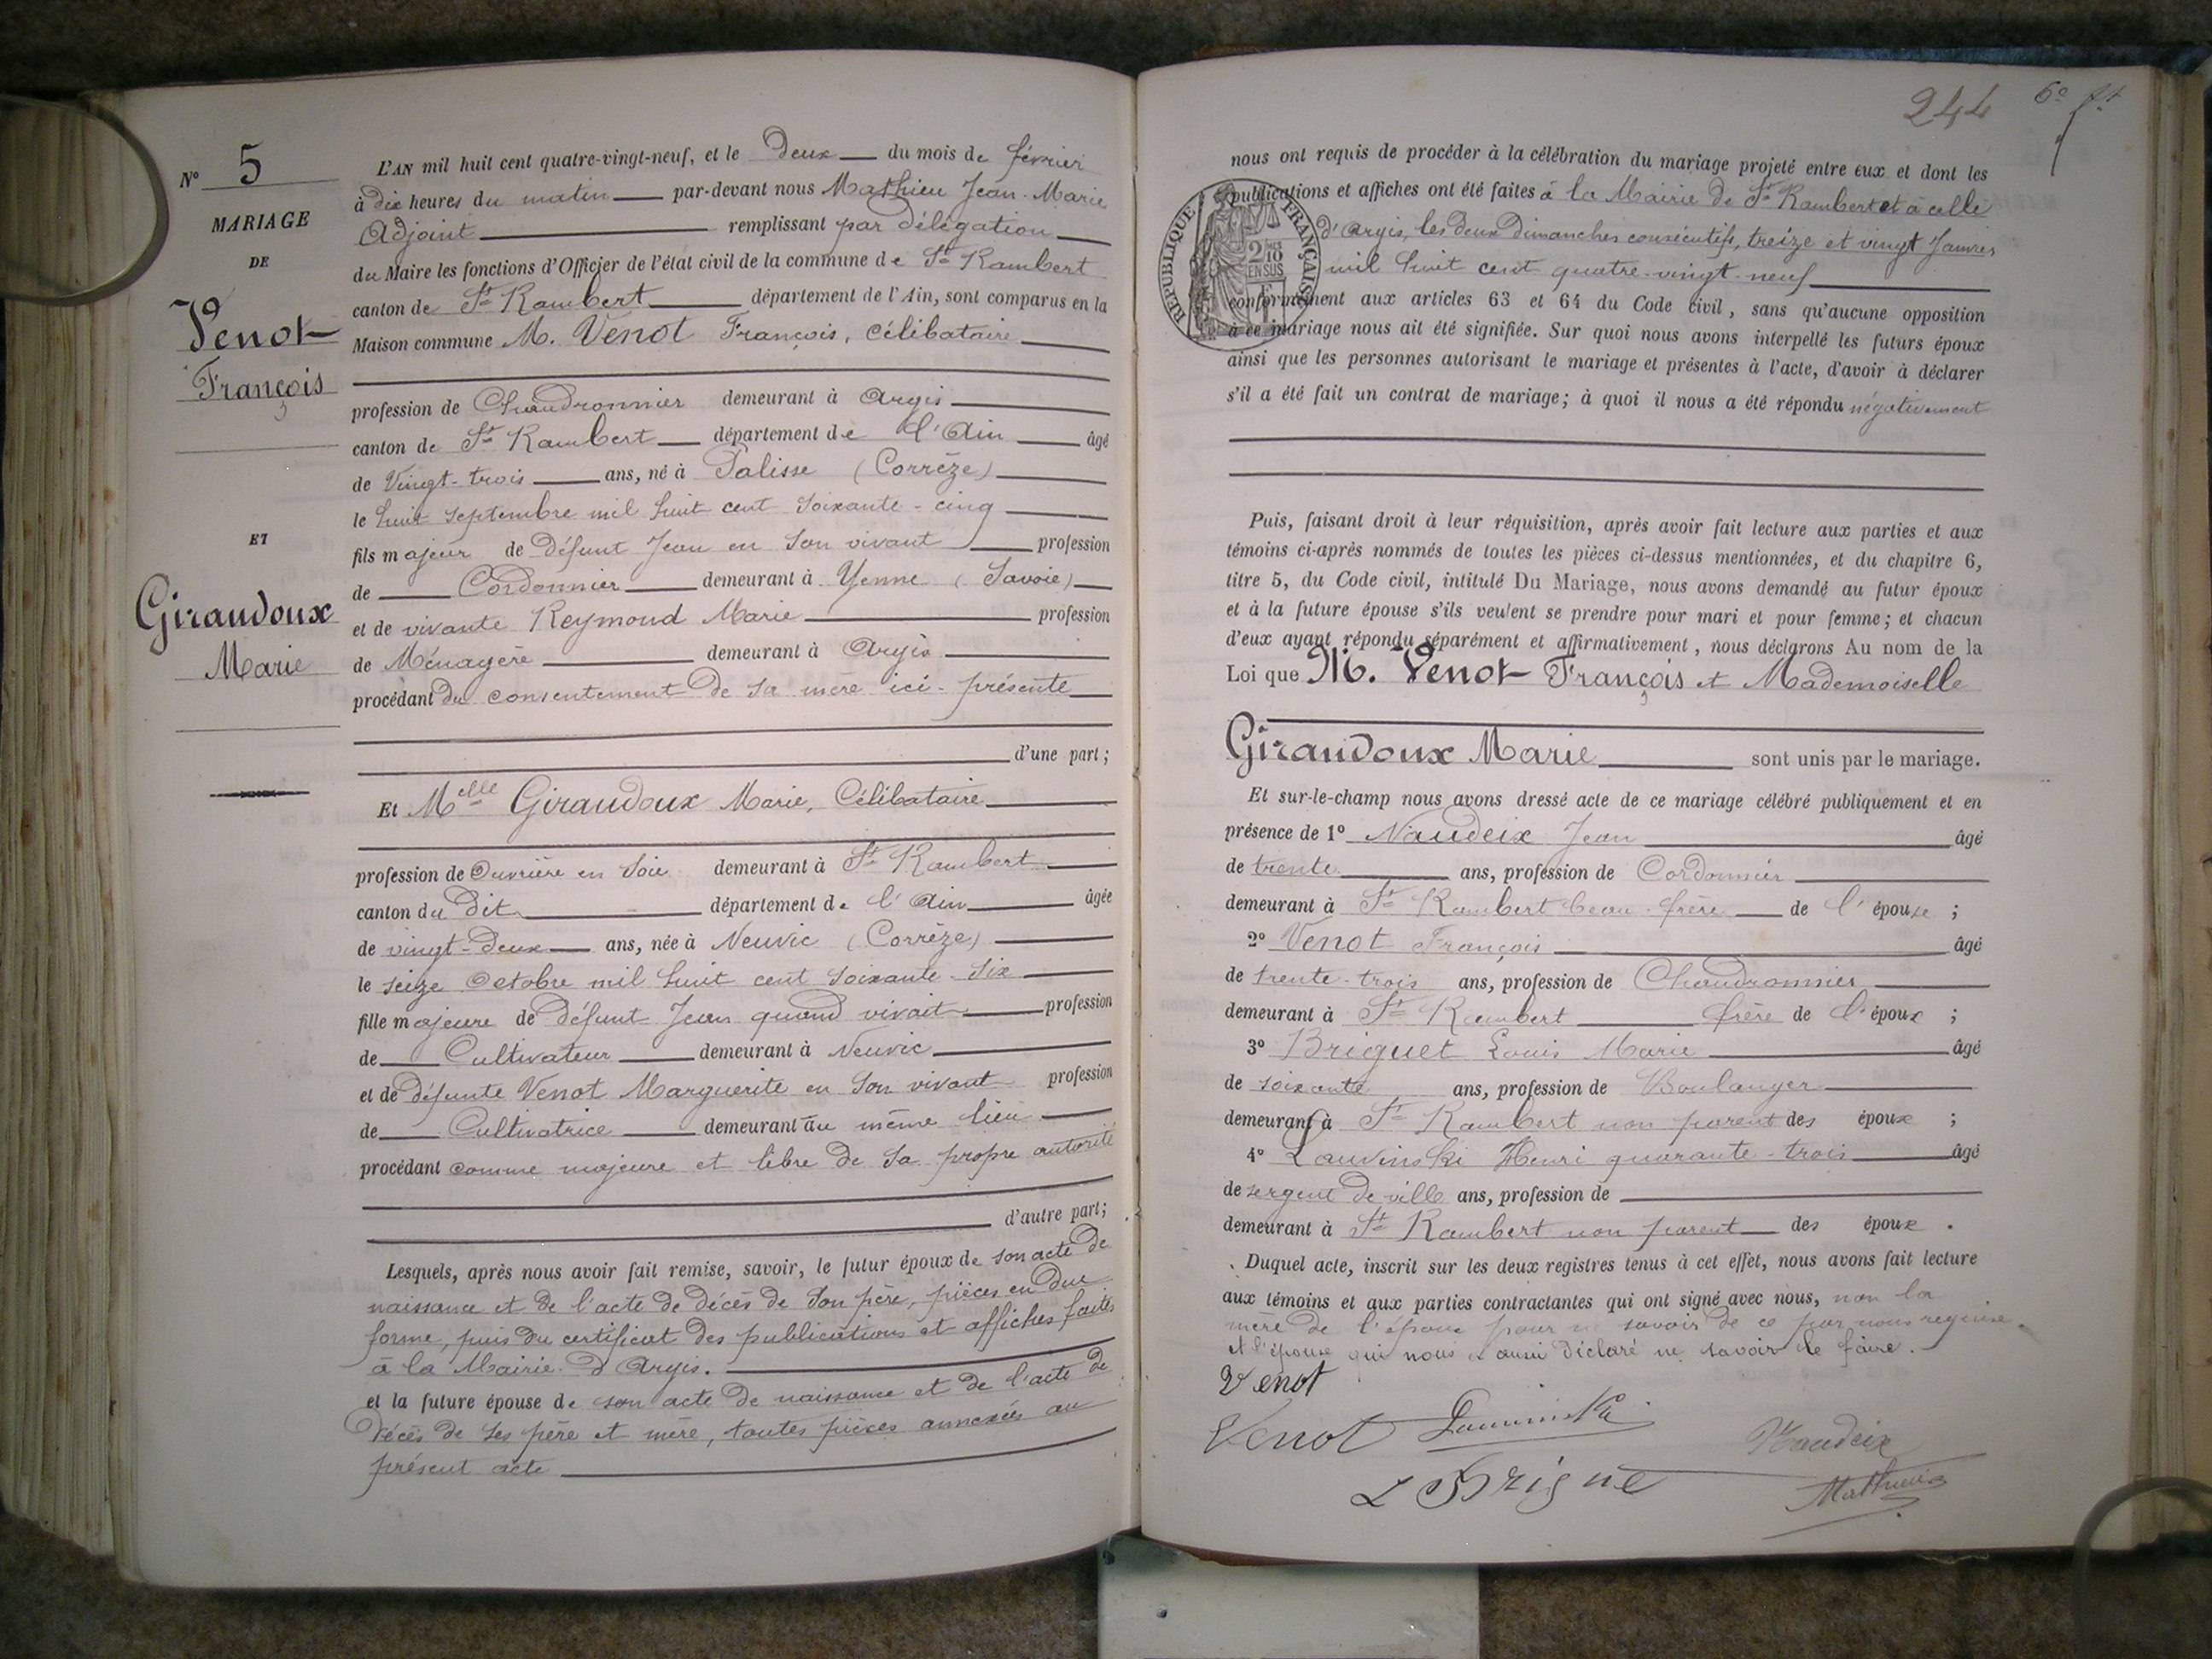 N° 5
MARIAGE
DE
Venot
François
ET
Giraudoux
Marie
L'AN mil huit cent quatre-vingt-neuf, et le Deux du mois de février
à dix heures du matin par-devant nous Mathieu Jean-Marie
Adjoint remplissant par Délégation
du Maire les fonctions d'Officier de l'état civil de la commune de St Rambert
canton de St Rambert département de l'Ain, sont comparus en la
Maison commune M. Venot François, Célibataire
profession de Chaudronnier demeurant à Argis
canton de St Rambert département de l'Ain âgé
de Vingt-trois ans, né à Palisse (Corrèze)
le huit septembre mil huit cent soixante-cinq
fils majeur de Défunt Jean en son vivant profession
de Cordonnier demeurant à Yenne (Savoie)
et de vivante Reymond Marie profession
de Ménagère demeurant à Argis
procédant du consentement de sa mère ici-présente
d'une part;
Et Melle Giraudoux Marie, Célibataire
profession de Ouvrière en soie demeurant à St Rambert
canton du Dit département de l'Ain âgée
de vingt-deux ans, née à Neuvic (Corrèze)
le seize Octobre mil huit cent soixante-six
fille majeure de Défunt Jean quand vivait profession
de Cultivateur demeurant à Neuvic
et de défunte Venot Marguerite en son vivant profession
de Cultivatrice demeurant au même lieu
procédant comme majeure et libre de sa propre autorité
d'autre part;
Lesquels, après nous avoir fait remise, savoir, le futur époux de son acte de
naissance et de l'acte de décès de son père, pièces en due
forme, puis du certificat des publications et affiches faites
à la Mairie d'Argis.
et la future épouse de son acte de naissance et de l'acte de
décès de ses père et mère, toutes pièces annexées au
présent acte
244
nous ont requis de procéder à la célébration du mariage projeté entre eux et dont les
publications et affiches ont été faites à la Mairie de St Rambert et à celle
d'Argis, les deux Dimanches consécutifs, treize et vingt Janvier
mil huit cent quatre-vingt-neuf
RÉPUBLIQUE FRANÇAISE
2/10 EN SUS
conformément aux articles 63 et 64 du Code civil, sans qu'aucune opposition
à ce mariage nous ait été signifiée. Sur quoi nous avons interpellé les futurs époux
ainsi que les personnes autorisant le mariage et présentes à l'acte, d'avoir à déclarer
s'il a été fait un contrat de mariage; à quoi il nous a été répondu négativement
Puis, faisant droit à leur réquisition, après avoir fait lecture aux parties et aux
témoins ci-après nommés de toutes les pièces ci-dessus mentionnées, et du chapitre 6,
titre 5, du Code civil, intitulé Du Mariage, nous avons demandé au futur époux
et à la future épouse s'ils veulent se prendre pour mari et pour femme; et chacun
d'eux ayant répondu séparément et affirmativement, nous déclarons Au nom de la
Loi que M. Venot François et Mademoiselle
Giraudoux Marie sont unis par le mariage.
Et sur-le-champ nous avons dressé acte de ce mariage célébré publiquement et en
présence de 1° Naudeix Jean âgé
de trente ans, profession de Cordonnier
demeurant à St Rambert beau-frère de l'épouse;
2° Venot François âgé
de trente-trois ans, profession de Chaudronnier
demeurant à St Rambert frère de l'époux;
3° Briguet Louis Marie âgé
de soixante ans, profession de Boulanger
demeurant à St Rambert non parent des époux;
4° Lauvinski Henri quarante-trois âgé
de sergent de ville ans, profession de
demeurant à St Rambert non parent des époux.
Duquel acte, inscrit sur les deux registres tenus à cet effet, nous avons fait lecture
aux témoins et aux parties contractantes qui ont signé avec nous, non la
mère de l'époux pour ne savoir de ce par nous requise.
et l'épouse qui nous a aussi déclaré ne savoir le faire.
Venot
Venot Naudeix
L Brigue Mathieu